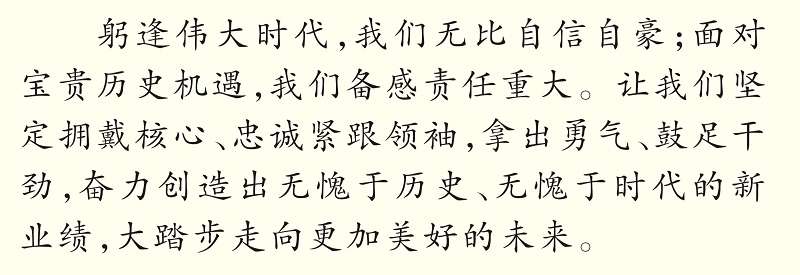 躬逢伟大时代,我们无比自信自豪;面对
宝贵历史机遇,我们备感责任重大。让我们坚
定拥戴核心、忠诚紧跟领袖,拿出勇气、鼓足干
劲,奋力创造出无愧于历史、无愧于时代的新
业绩,大踏步走向更加美好的未来。